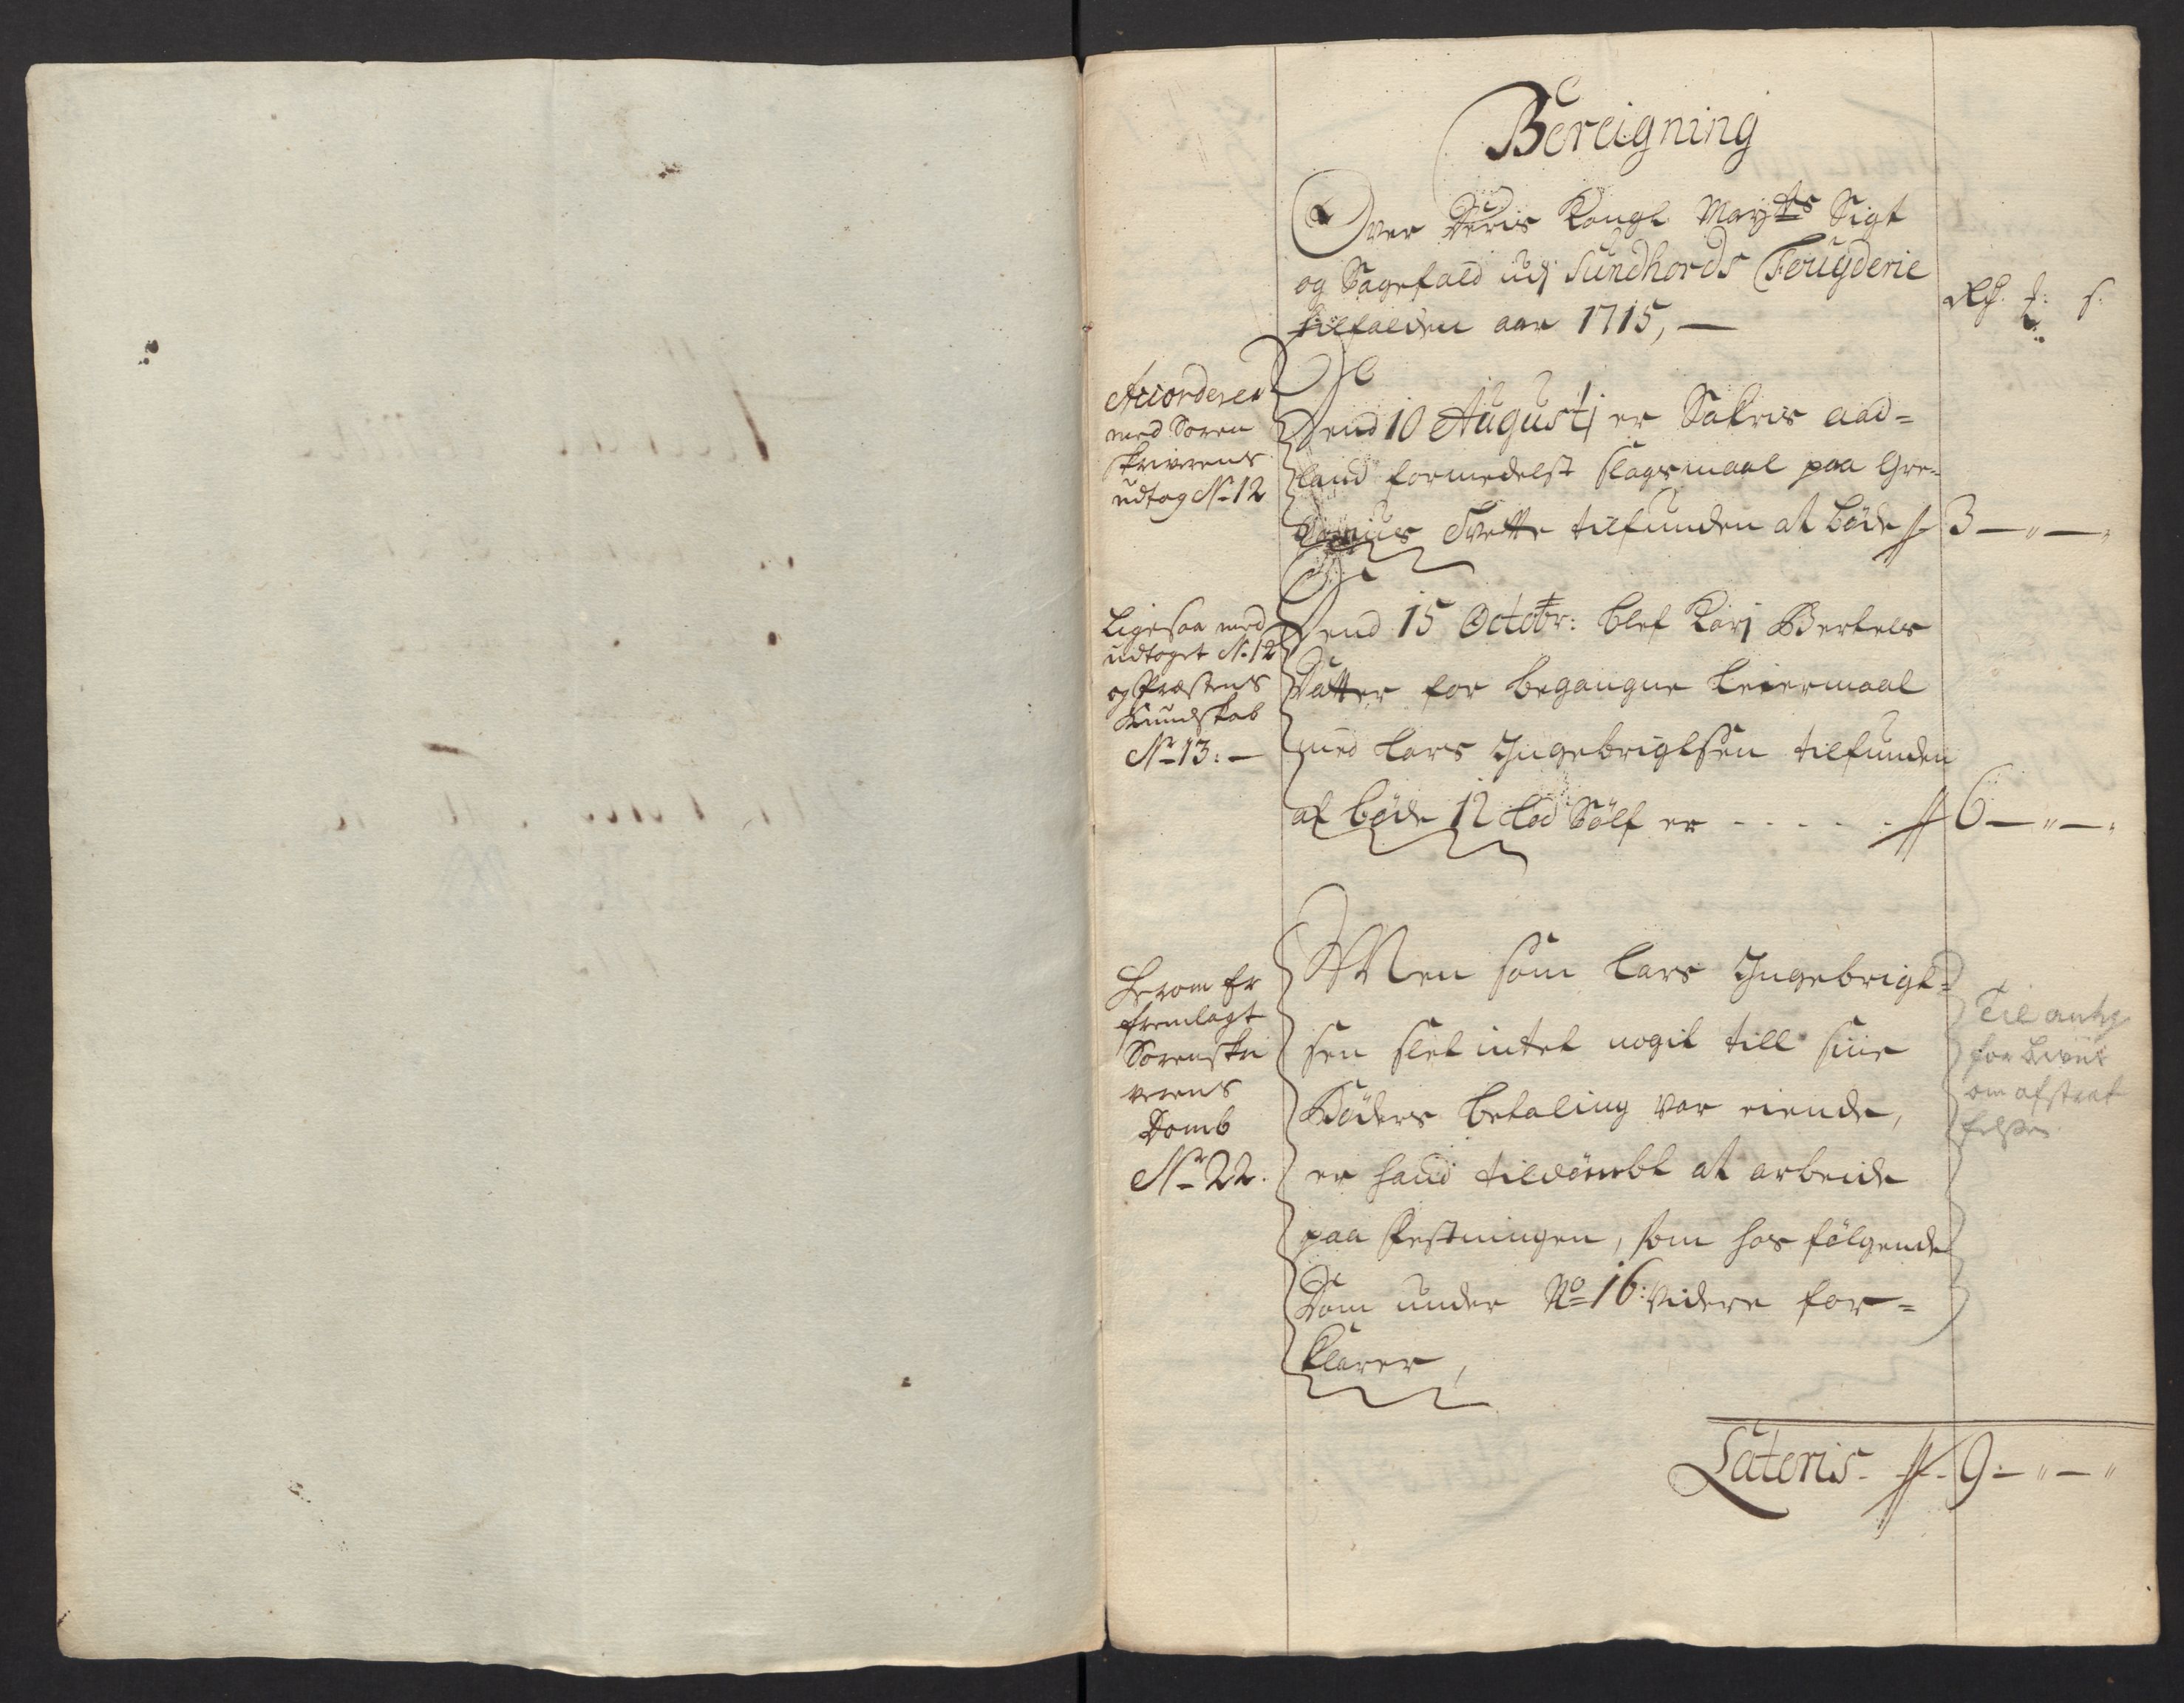 Bereigning
Over Deris Kongl Maytts Sigt
og Sagefald udj Sundhords Fougderie
tilfalden aar 1715,
Rd. s.
Accorderer
med Soren
skriverens
udtog No 12
Dend 10 Augustj er Sakris aad=
land formedelst slagsmaal paa Gre=
Tvette tilfunden at bøde 3 — " — "
Ligesaa med
udtoget No 12
og Præstens
Kundskab
No 13: —
Dend 15 Octobr: blef Karj Bertels
Datter for begangne Leiermaal
med Lars Ingebrigtsen tilfunden
at bøde 12 Lod Sølf er - - - - - 6 — " — "
Herom Er
fremlagt
Sorenskri
verens
Domb
No 22.
Men som Lars Ingebrigt=
sen slet intet nogit till sine
Bøders betaling var eiende,
er hand tildømbt at arbeide
paa Festningen, som hos følgende
Dom under No 16: videre for=
klarer,
Til antg
for beviis
om afstraf
felsen
Lateris - 9 — " — "